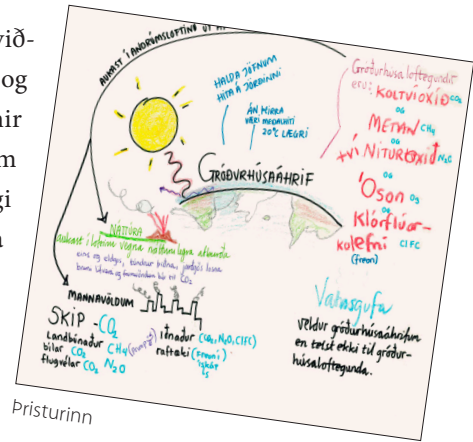 við-
og
nir
m
gi
a
AUKAST Í ANDRÚMSLOFTINU ÚT AF
HALDA JÖFNUM
HITA Á JÖRÐINNI
ÁN ÞIRRA
VÆRI MEÐALHITI
20°C LÆGRI
GRÓÐURHÚSAÁHRIF
Gróðurhúsa lofttegundir
eru: KOLTVÍOXÍÐ CO₂
og
METAN CH₄
og
TVÍNITUROXÍÐ N₂O
og
ÓSON O₃
og
Klórflúor-
kolefni ClFC
(freon)
NÁTTÚRA
aukast í loftinu vegna náttúrulegra atburða
eins og eldgos,
CO₂
MANNAVÖLDUM
SKIP - CO₂
Landbúnaður CH₄
bílar CO₂
flugvélar CO₂ N₂O
iðnaður (CO₂, N₂O, ClFC)
raftæki (freon)
Vatnsgufa
veldur gróðurhúsaáhrifum
en telst ekki til gróður-
húsalofttegunda.
Þristurinn